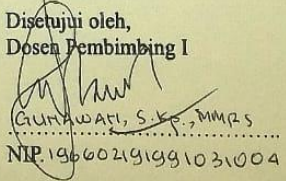 Disetujui oleh,
Dosen Pembimbing I
GUNAWAN, S.Kp., MMRS
NIP. 196602191991031004